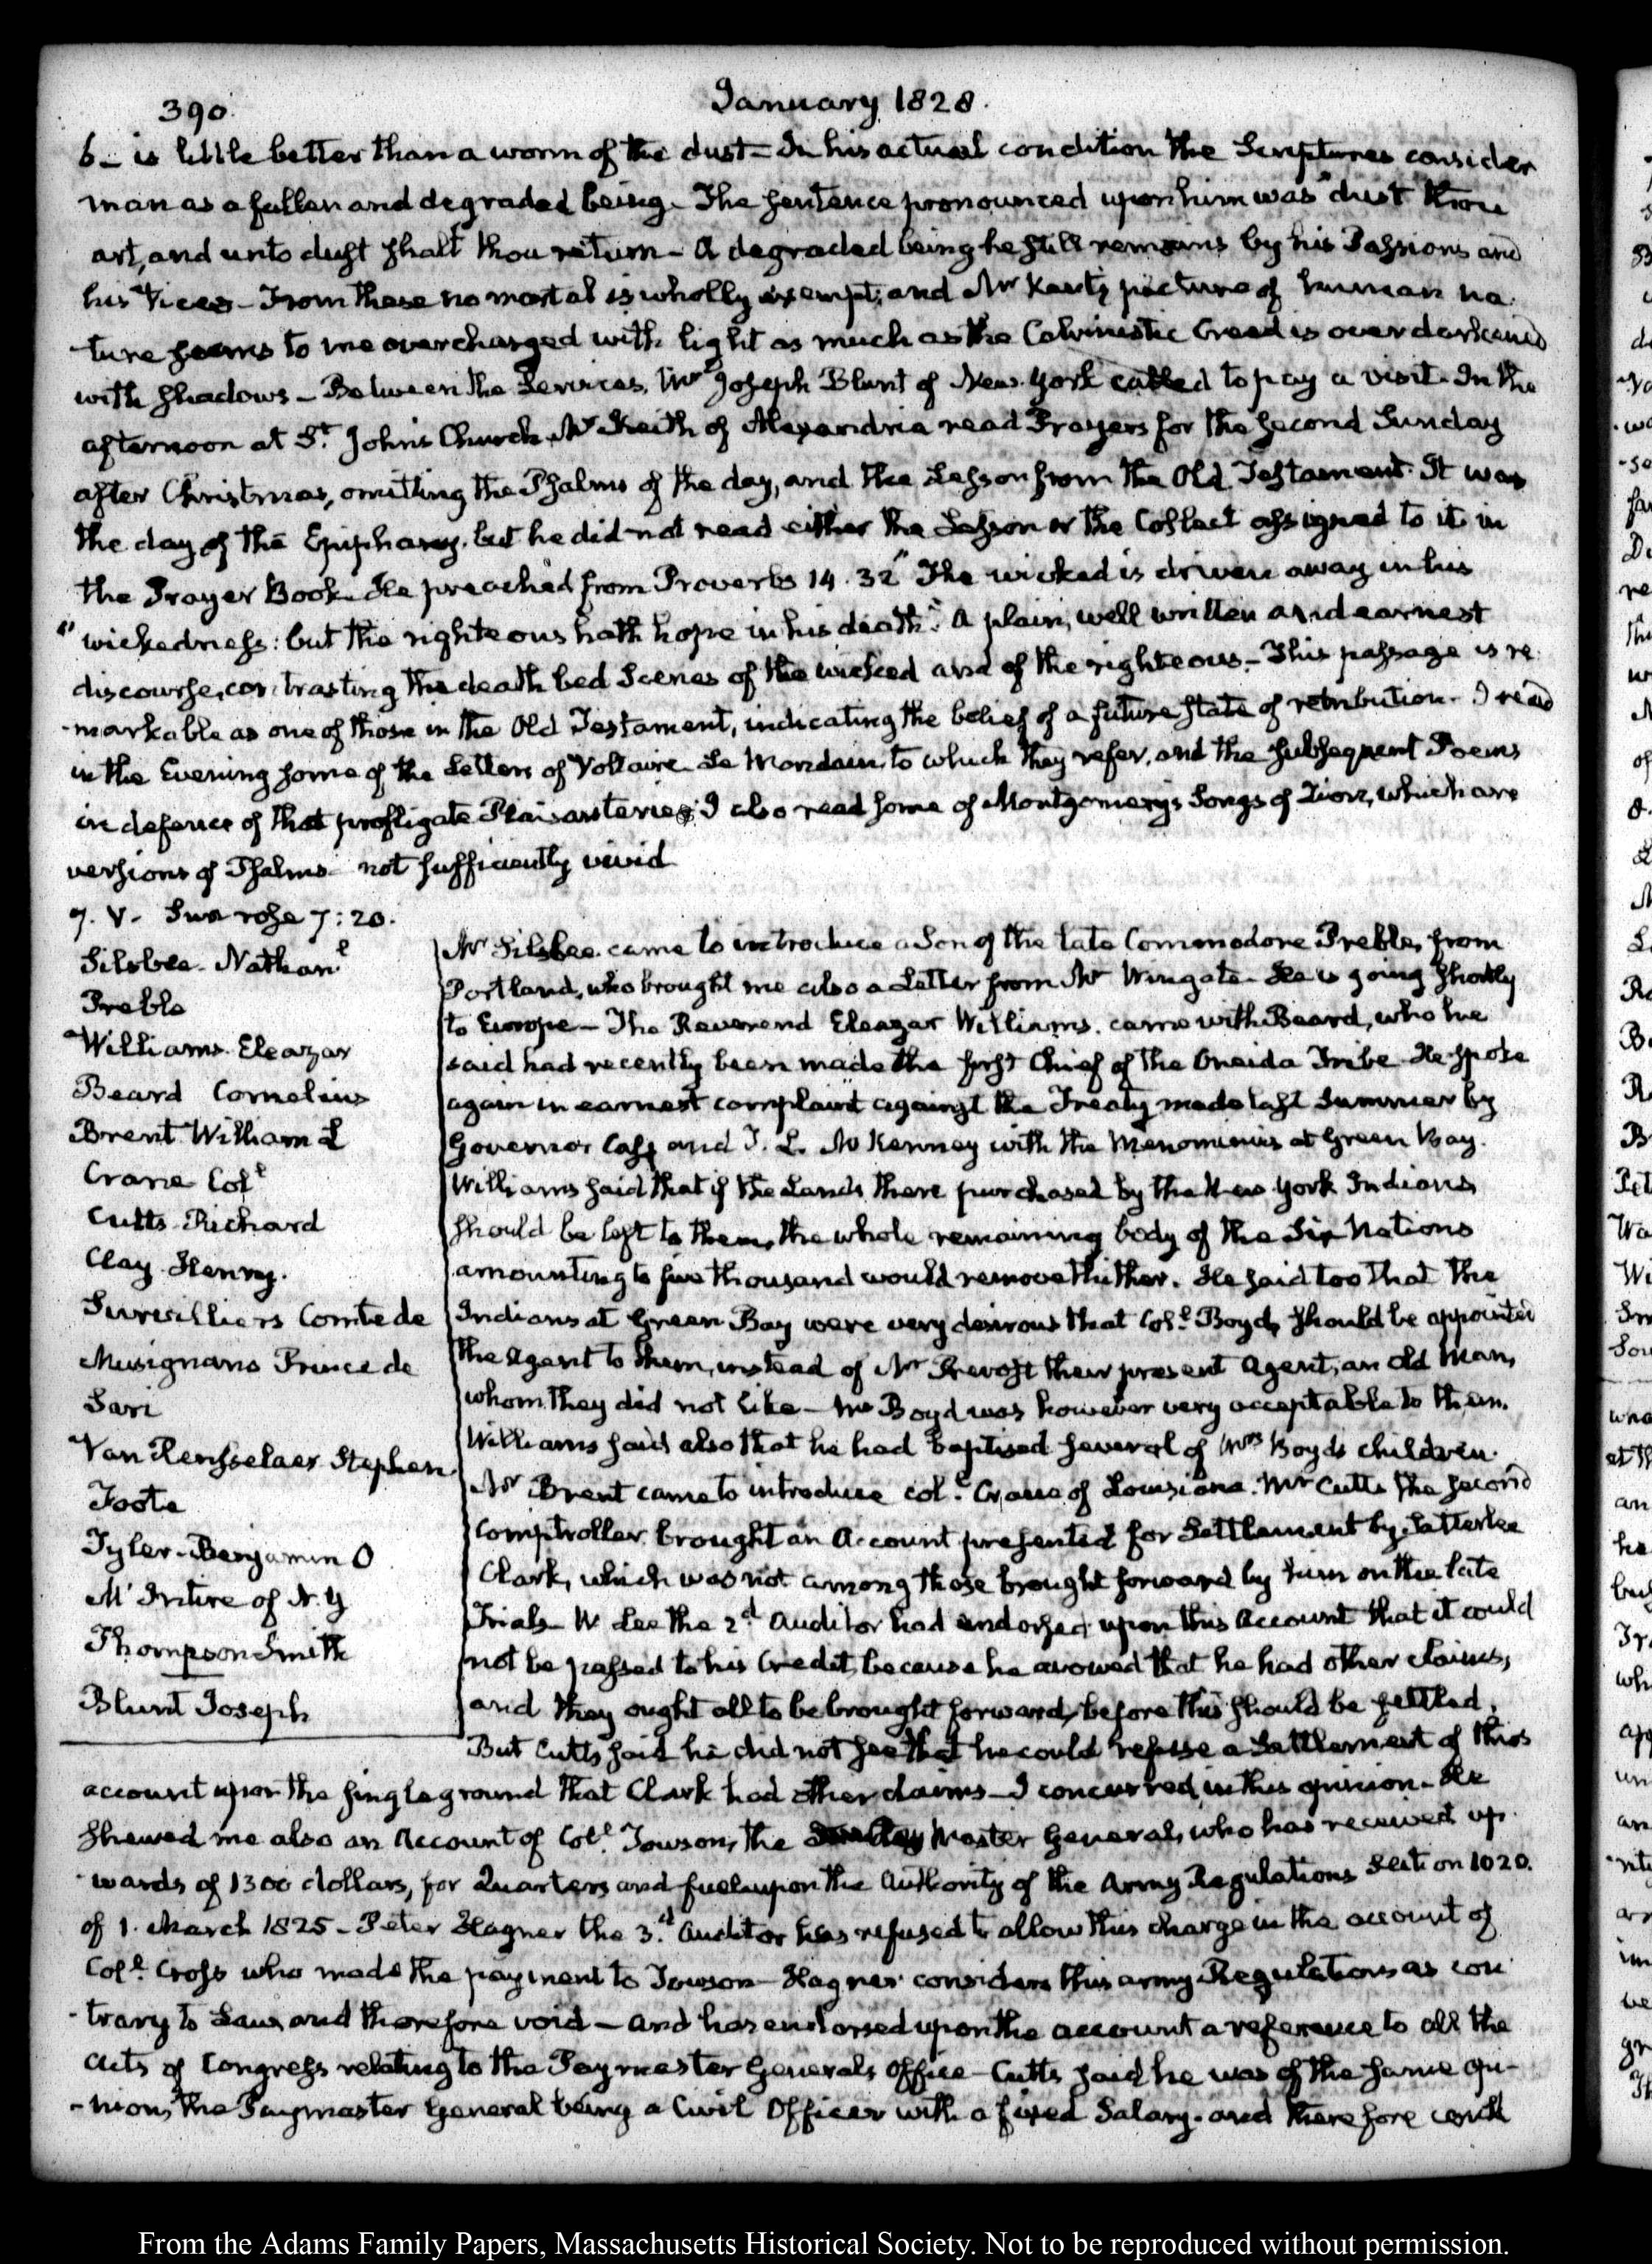 390.
January 1828.
6_ is little better than a worm of the dust_ In his actual condition the Scriptures consider
man as a fallen and degraded being_ The sentence pronounced upon him was "dust thou
art, and unto dust shalt thou return_ A degraded being he still remains by his Passions and
his Vices_ From these no mortal is wholly exempt, and Mr picture of human na
-ture seems to me overcharged with light as much as the Calvinistic Creed is overdarkened
with shadows_ Between the Services, Mr Joseph Blunt of New-York called to pay a visit. In the
afternoon at St. John's Church Mr Keith of Alexandria read Prayers for the second Sunday
after Christmas, omitting the Psalms of the day, and the Lesson from the Old Testament. It was
the day of the Epiphany, but he did not read either the Lesson or the Collect assigned to it in
the Prayer Book_ He preached from Proverbs 14. 32 "The wicked is driven away in his
"wickedness: but the righteous hath hope in his death." A plain, well written and earnest
discourse, contrasting the death bed Scenes of the wicked and of the righteous_ This passage is re
-markable as one of those in the Old Testament, indicating the belief of a future state of retribution. I read
in the Evening some of the Letters of Voltaire_ Le Mondain, to which they refer, and the subsequent Poems
in defence of that profligate Plaisanterie; I also read some of Montgomery's Songs of Zion, which are
versions of Psalms_ not sufficiently vivid
7. V. Sun rose 7:20.
Silsbee. Nathanl
Preble
Williams. Eleazar
Beard Cornelius
Brent William L
Crane Coll
Cutts Richard
Clay Henry.
Survilliers Comte de
Musignano Prince de
Sari
Van Rensselaer Stephen.
Foote
Tyler. Benjamin O
McIntire of N.Y
Thompson Smith
Blunt Joseph
Mr Silsbee came to introduce a Son of the late Commodore Preble, from
Portland, who brought me also a Letter from Mr Wingate_ He is going shortly
to Europe_ The Reverend Eleazar Williams. came with Beard, who he
said had recently been made the first Chief of the Oneida Tribe_ He spoke
again in earnest complaint against the Treaty made last Summer by
Governor Cass and T. L. McKenney with the Menominies at Green Bay.
Williams said that if the Lands there purchased by the New York Indians
should be left to them, the whole remaining body of the Six Nations
amounting to five thousand would remove thither. He said too that the
Indians at Green Bay were very desirous that Coll. Boyd, should be appointed
the Agent to them, instead of Mr Prevost their present Agent, an old man,
whom they did not like_ Mr Boyd was however very acceptable to them.
Williams said also that he had baptised several of Mrs Boyd's children.
Mr Brent came to introduce Coll. Crane of Louisiana. Mr Cutts the second
Comptroller brought an Account presented for Settlement by Satterlee
Clark, which was not among those brought forward by him on the late
Trial_ W Lee the 2d Auditor had endorsed upon this Account that it could
not be passed to his Credit, because he avowed that he had other claims,
and they ought all to be brought forward, before this should be settled,
But Cutts said he did not see that he could refuse a Settlement of this
account upon the single ground that Clark had other claims_ I concurred in this opinion_ He
shewed me also an Account of Coll. Towson, the Master General, who has received up
-wards of 1300 dollars, for Quarters and fuel upon the Authority of the Army Regulations Section 1020.
of 1. March 1825_ Peter Hagner the 3.d Auditor has refused to allow this charge in the account of
Coll. Cross who made the payment to Towson_ Hagner considers this army Regulations as con
-trary to Law and therefore void_ and has endorsed upon the account a reference to all the
Acts of Congress relating to the Paymaster General's Office_ Cutts said he was of the same opi-
-nion, the Paymaster General being a Civil Officer with a fixed Salary. and therefore
From the Adams Family Papers, Massachusetts Historical Society. Not to be reproduced without permission.